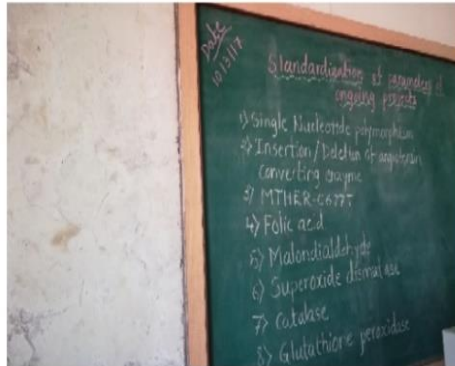 Date
10/3/17
Standardization of parameters of
ongoing projects
1) Single Nucleotide polymorphism
2) Insertion/Deletion of angiotensin
converting enzyme
3) MTHER-C677T
4) Folic acid
5) Malondialdehyde
6) Superoxide dismutase
7) Catalase
8) Glutathione peroxidase